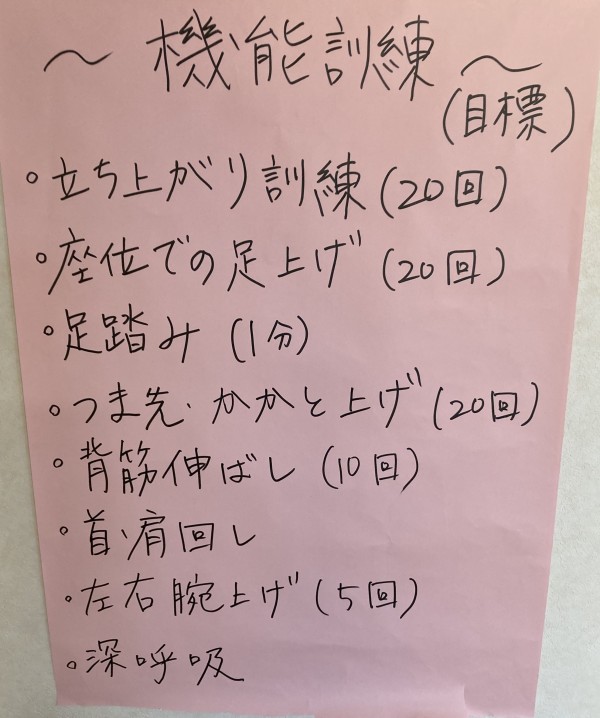 ～機能訓練～
(目標)
・立ち上がり訓練(20回)
・座位での足上げ(20回)
・足踏み(1分)
・つま先・かかと上げ(20回)
・背筋伸ばし(10回)
・首・肩回し
・左右腕上げ(5回)
・深呼吸